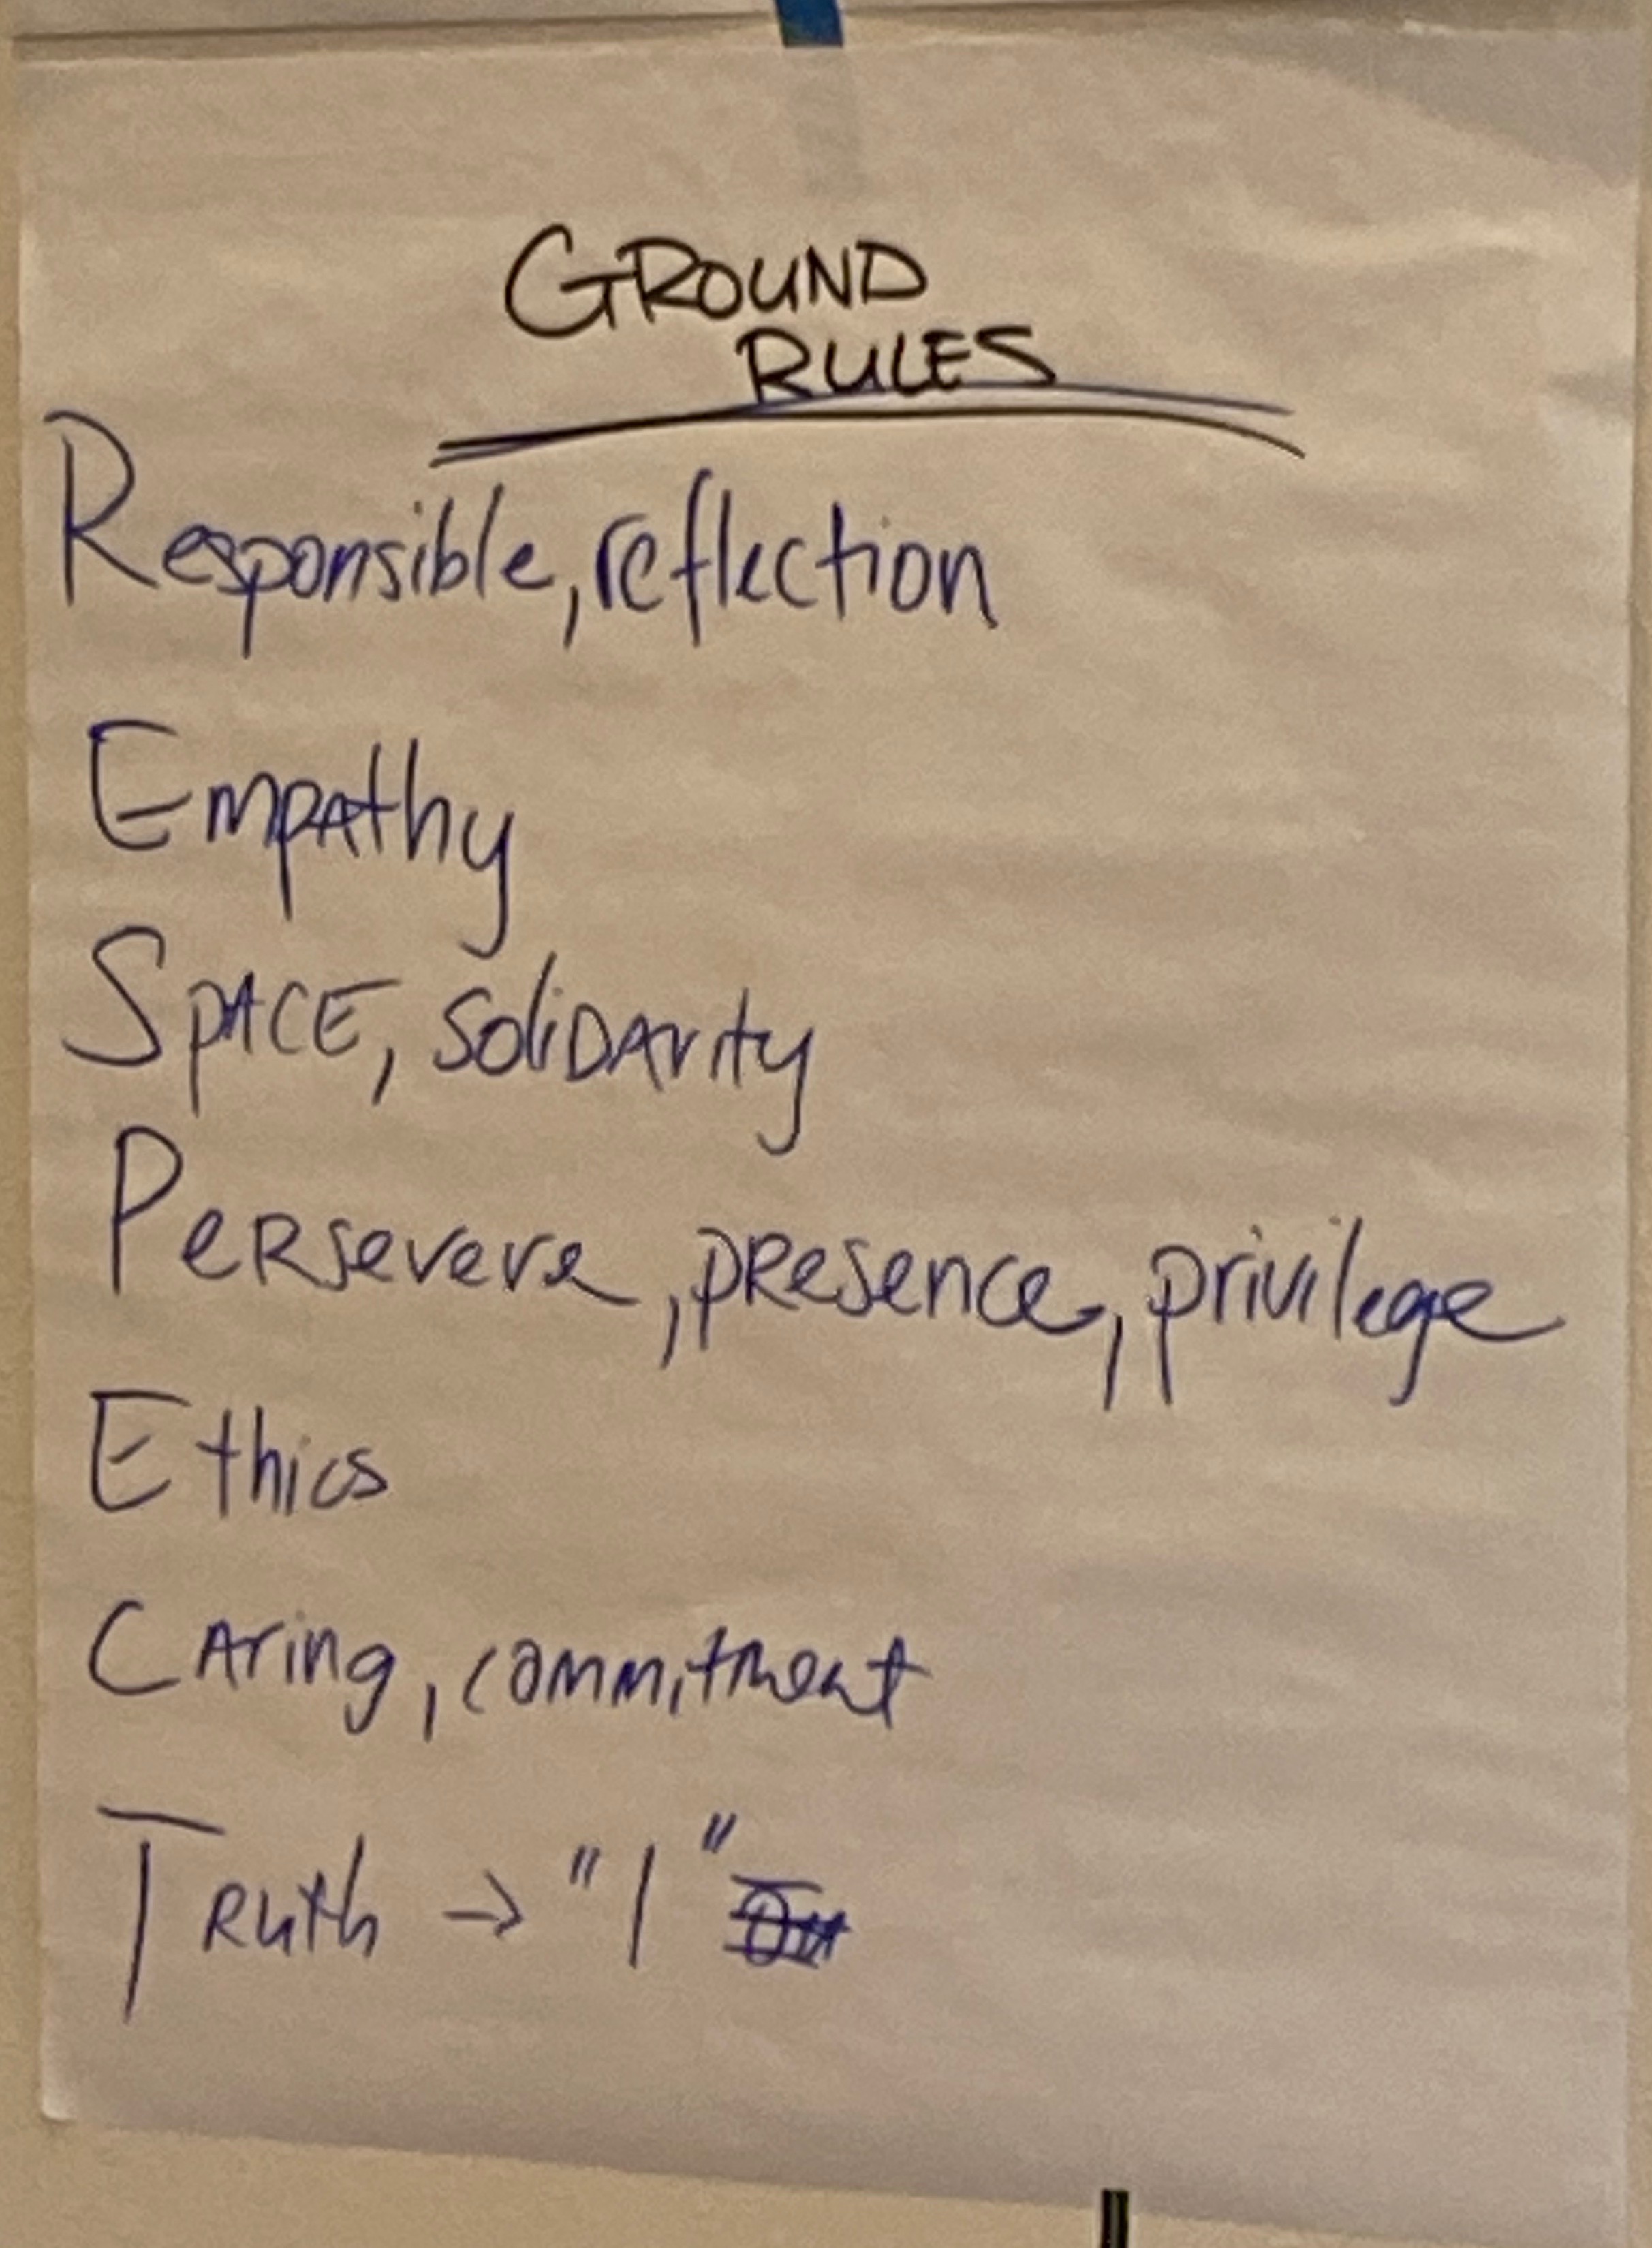 GROUND
RULES
Responsible, reflection
Empathy
SPACE, soliDArity
Persevere, presence, privilege
Ethics
CAring, commitment
TRuth → "I"